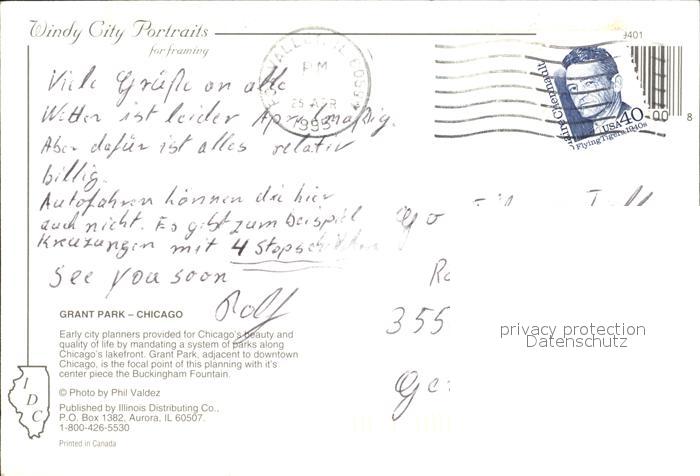 Windy City Portraits
for framing
9401
PM
25 APR
1995
Claire Chennault
USA 40
Flying Tigers, 1940s
00
8
Viele Grüße an alle
Wetter ist leider Aprilmäßig.
Aber dafür ist alles relativ
billig.
Autofahren können die hier
auch nicht. Es gibt zum Beispiel
Kreuzungen mit 4 Stopschildern
See you soon
Rolf
355
privacy protection
Datenschutz
GRANT PARK – CHICAGO
Early city planners provided for Chicago's beauty and
quality of life by mandating a system of parks along
Chicago's lakefront. Grant Park, adjacent to downtown
Chicago, is the focal point of this planning with it's
center piece the Buckingham Fountain.
© Photo by Phil Valdez
Published by Illinois Distributing Co.,
P.O. Box 1382, Aurora, IL 60507.
1-800-426-5530
Printed in Canada
IDC